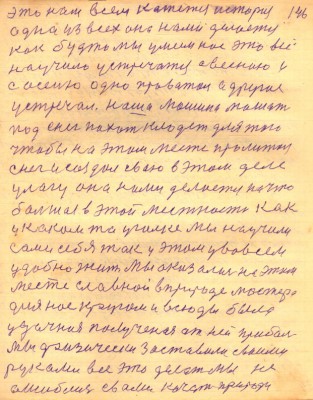 это нам всем кажется история 146
одна из всех она нами делается
как будто мы умеем нас это всё
научило встречать с весною и
с осенью одно провожать а другое
встречать. наша машина пашет
под снег пахот кладет для того
чтобы на этом месте пролитой
снег и создал свою в этом деле
влагу она нами делается
в этой местности как
у каком то уголке мы научили
сами себя так у этом у во всем
удобно жить мы оказались на этом
месте славной в природе мастера
для нас кругом и всюду была
удачная полученая от ней прибал
мы физически заставили своими
руками все это делать мы не
ошиблись своими природы